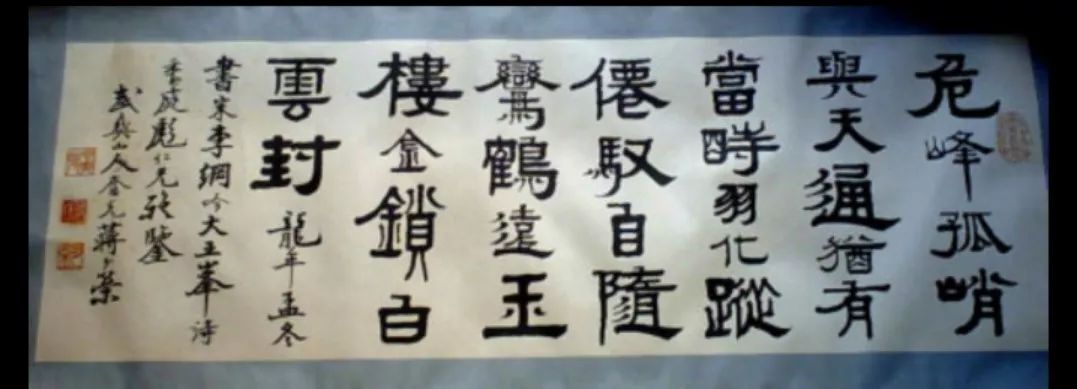 危峰孤峭
與天通猶有
當時羽化蹤
僊馭自隨
鸞鶴遠玉
樓金鎖白
雲封 龍年孟冬
書宋李綱今大王峯詩
季庭彪仁兄雅鑒
武夷山人 蔣